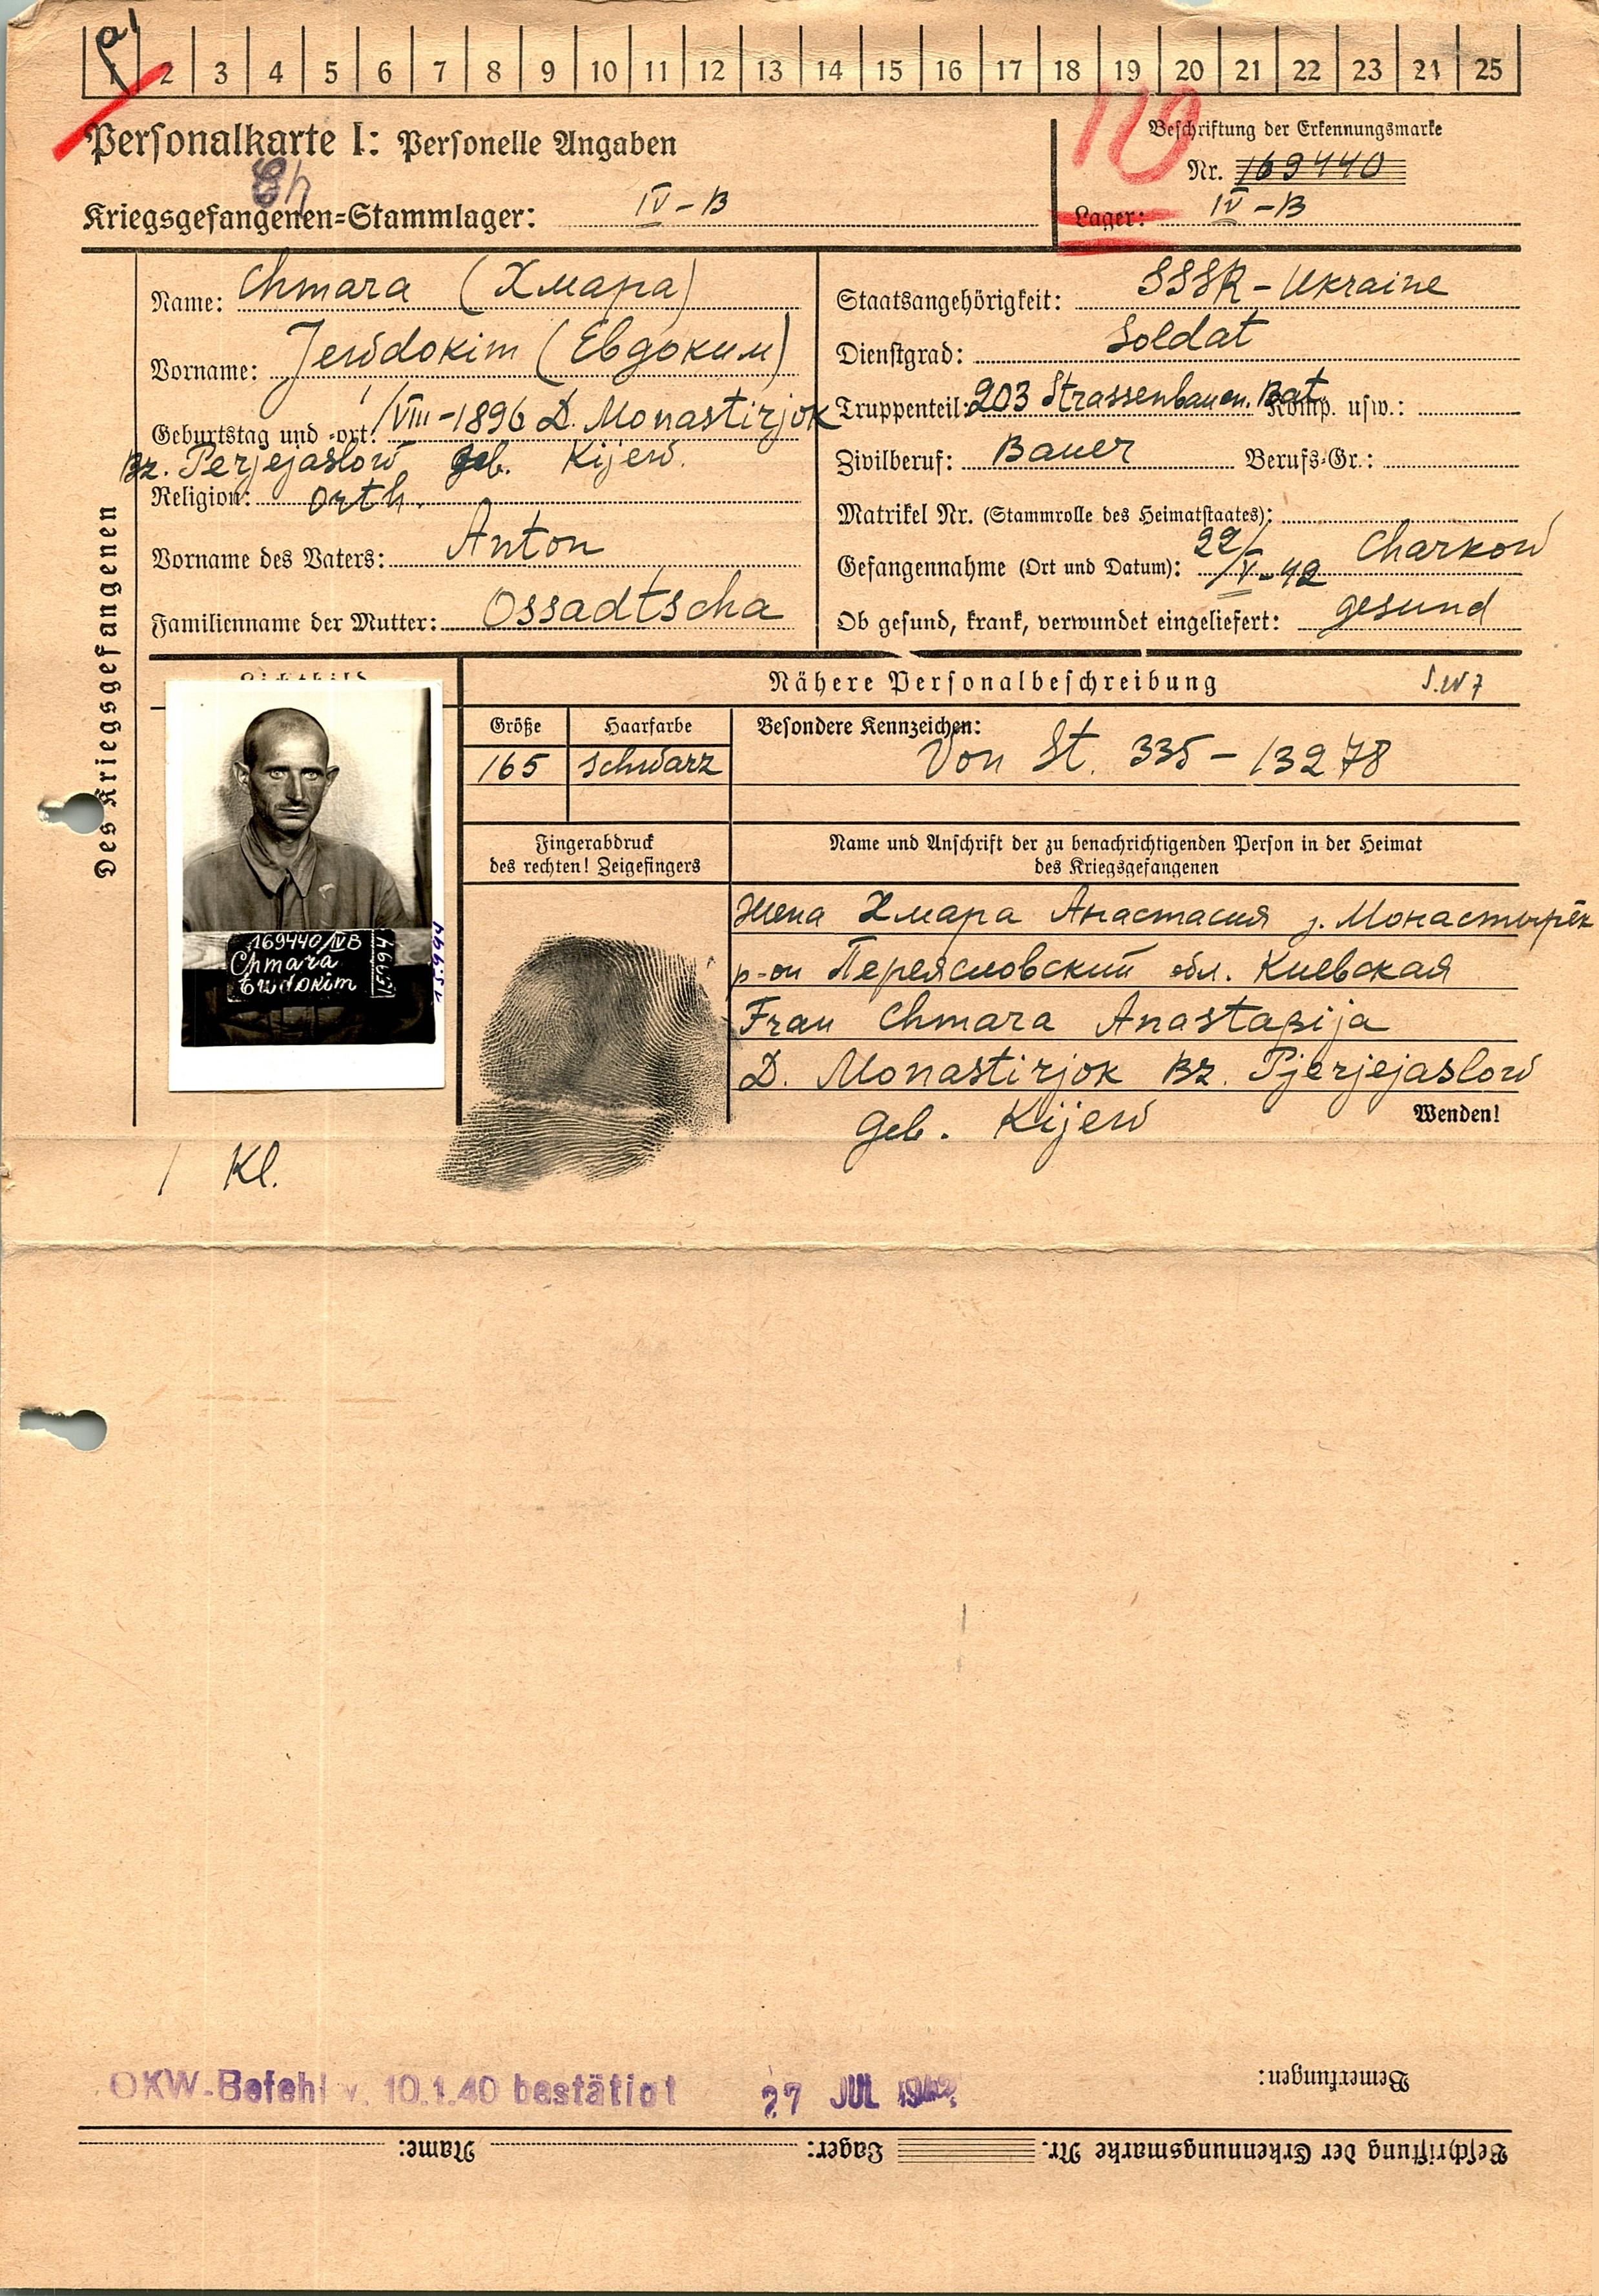 1 2 3 4 5 6 7 8 9 10 11 12 13 14 15 16 17 18 19 20 21 22 23 24 25
Personalkarte I: Personelle Angaben
Kriegsgefangenen=Stammlager: IV-B
110
Beschriftung der Erkennungsmarke
Nr. 169440
Lager: IV-B
Des Kriegsgefangenen
Name: Chmara (Хмара)
Vorname: Jewdokim (Евдоким)
Geburtstag und =ort: /VIII-1896 D. Monastirjok
Bz. Perjejaslow geb. Kijew.
Religion: orth.
Vorname des Vaters: Anton
Familienname der Mutter: Ossadtscha
Staatsangehörigkeit: SSSR-Ukraine
Dienstgrad: Soldat
Truppenteil: 203 Strassenbauen. Bat. Komp. usw.:
Zivilberuf: Bauer Berufs=Gr.:
Matrikel Nr. (Stammrolle des Heimatstaates):
Gefangennahme (Ort und Datum): 22/V-42 Charkow
Ob gesund, krank, verwundet eingeliefert: gesund
Lichtbild
169440/IVB
Chmara
Ewdokim
15.9.44
Nähere Personalbeschreibung
Größe Haarfarbe
165 schwarz
Besondere Kennzeichen:
Von St. 335-13278
Fingerabdruck
des rechten! Zeigefingers
Name und Anschrift der zu benachrichtigenden Person in der Heimat
des Kriegsgefangenen
жена Хмара Анастасия д. Монастырёк
р-он Переясловский обл. Киевская
Frau Chmara Anastasija
D. Monastirjok Bz. Pjerjejaslow
geb. Kijew
Wenden!
/ Kl.
OKW-Befehl v. 10.1.40 bestätigt 27 JUL 1942
Bemerkungen:
Beschriftung der Erkennungsmarke Nr. Lager: Name: